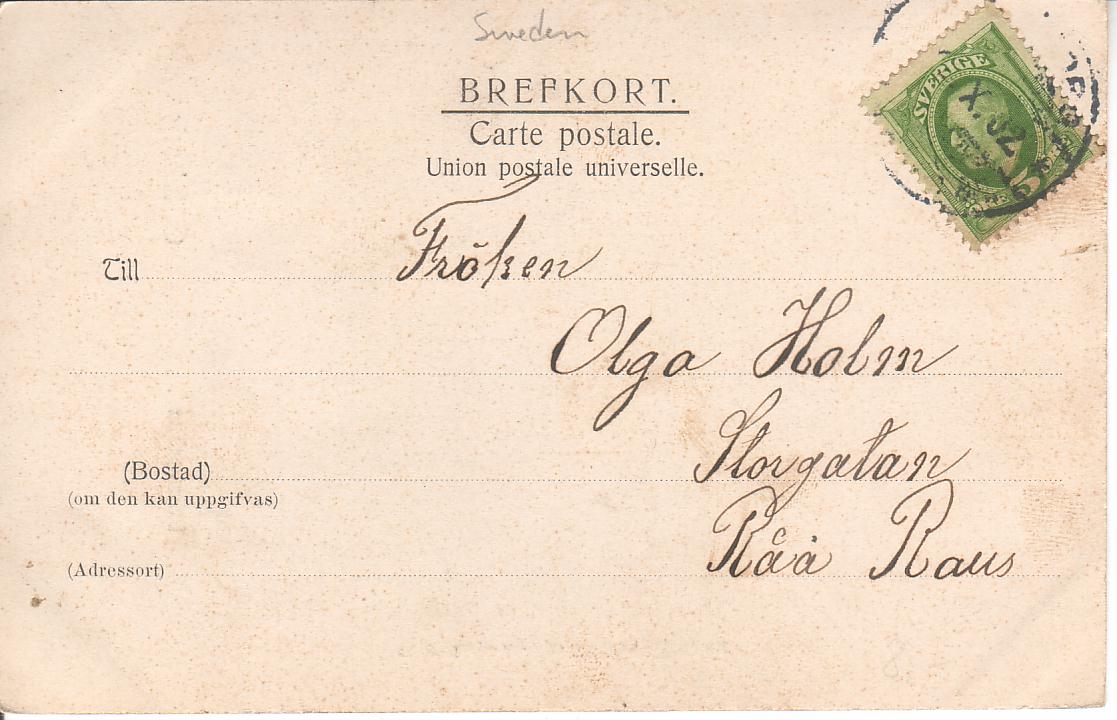 Sweden
BREFKORT.
Carte postale.
Union postale universelle.
SVERIGE
X.02
Till Fröken
Olga Holm
(Bostad) Storgatan
(om den kan uppgifvas)
(Adressort) Råå Raus
8.